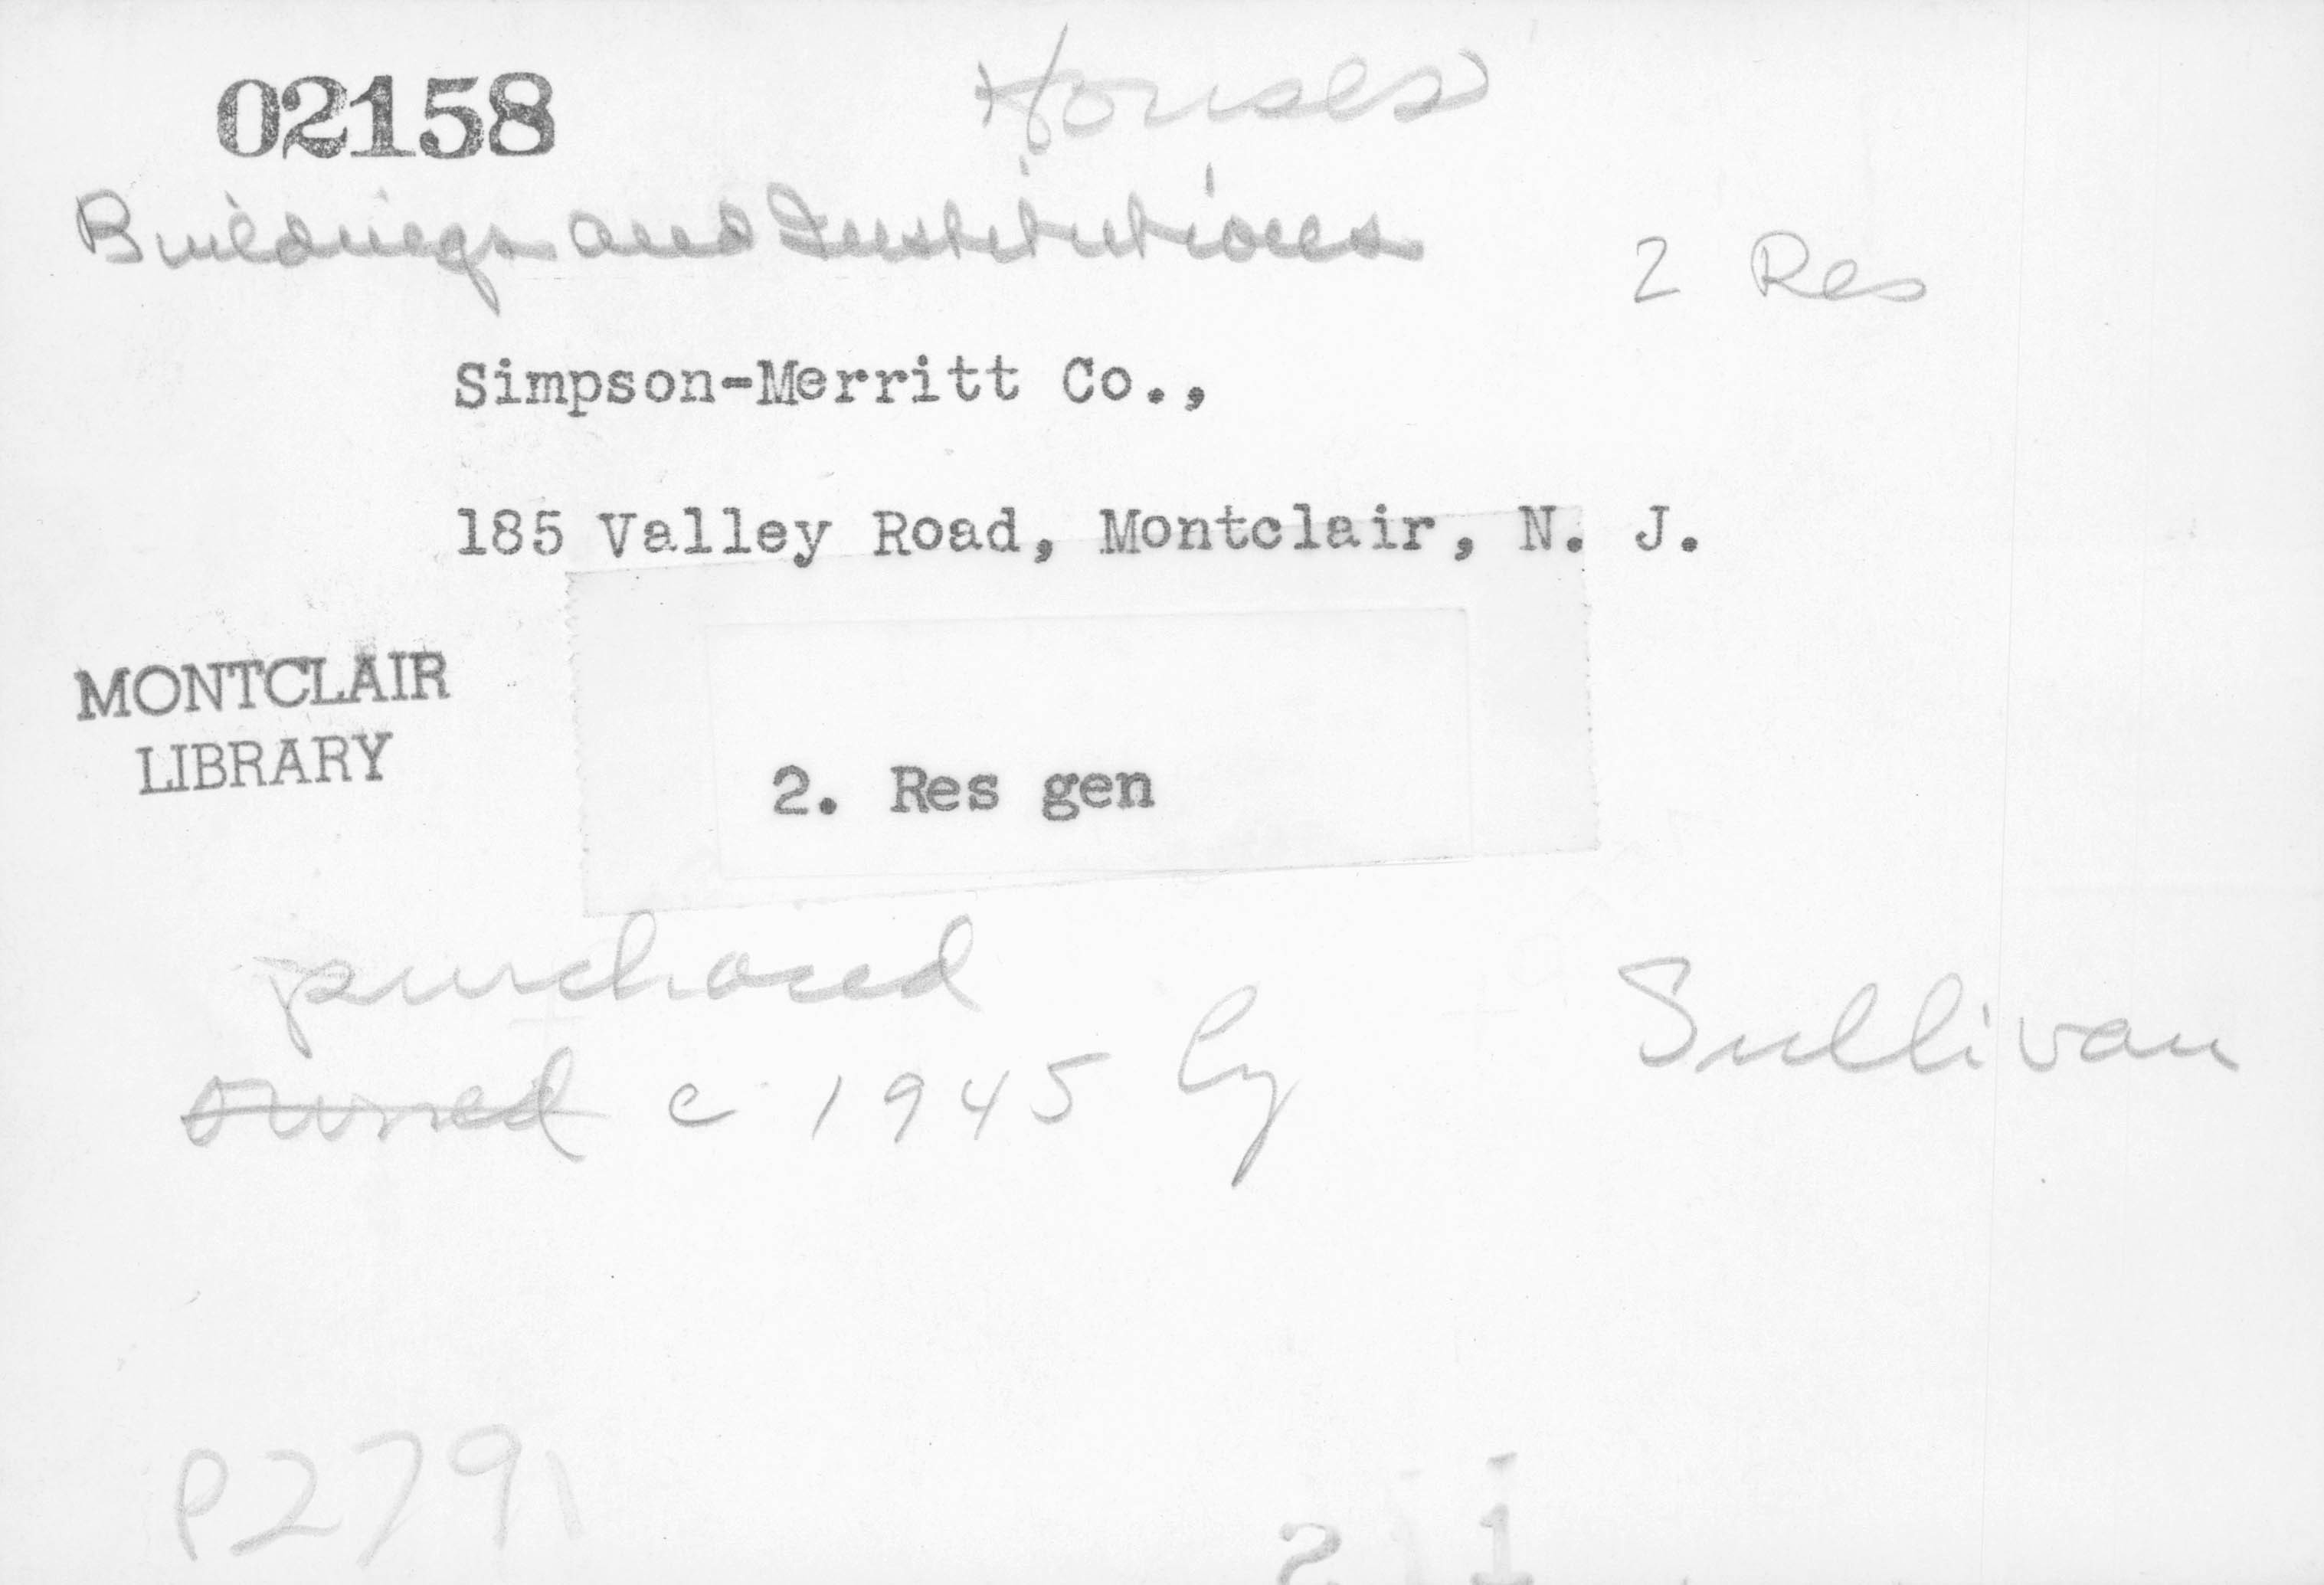 02158
Houses
Buildings and Institutions
2 Res
Simpson-Merritt Co.,
185 Valley Road, Montclair, N. J.
MONTCLAIR
LIBRARY
2. Res gen
purchased
owned c 1945 by Sullivan
P2791